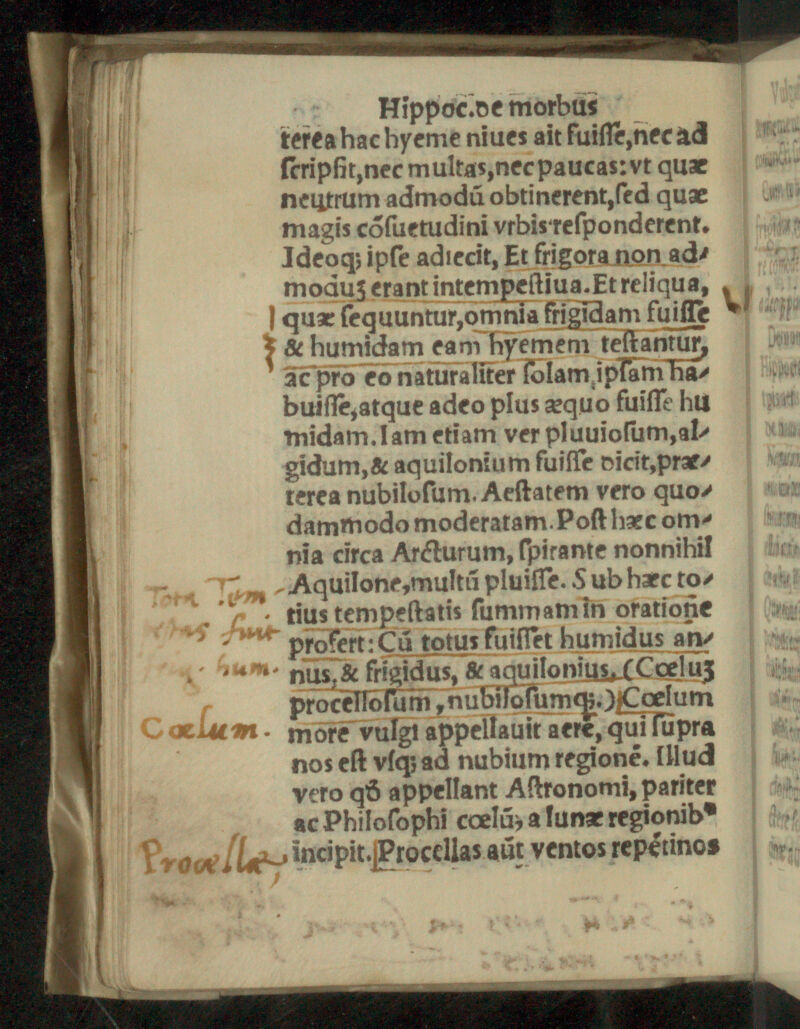 Hippoc.de morbus
terea hac hyeme niues ait fuiſſe,nec ad
ſcripſit,nec multas,nec paucas: vt quæ
neutrum admodū obtinerent,ſed quæ
magis cōſuetudini vrbis reſponderent.
Ideoqꝫ ipſe adiecit, Et frigora non ad⸗
moduꝫ erant intempeſtiua.Et reliqua,
quæ ſequuntur,omnia frigidam fuiſſe
& humidam eam hyemem teſtantur,
ac pro eo naturaliter ſolam ipſam ha⸗
buiſſe,atque adeo plus æquo fuiſſe hu
midam.Iam etiam ver pluuioſum,al⸗
gidum,& aquilonium fuiſſe dicit,præ⸗
terea nubiloſum. Aeſtatem vero quo⸗
dammodo moderatam.Poſt hæc om⸗
nia circa Arcturum, ſpirante nonnihil
Aquilone,multū pluiſſe. Sub hæc to⸗
tius tempeſtatis ſummam in oratione
profert: Cū totus fuiſſet humidus an⸗
nus,& frigidus, & aquilonius, (Cœluꝫ
procelloſum,nubiloſumqꝫ.) Cœlum
Cœlum.
more vulgi appellauit aerē, qui ſupra
nos eſt vſqꝫ ad nubium regionē. Illud
vero qđ appellant Aſtronomi, pariter
ac Philoſophi cœlū, a lunæ regionibꝰ
Procellæ
incipit. Procellas aūt ventos repētinos